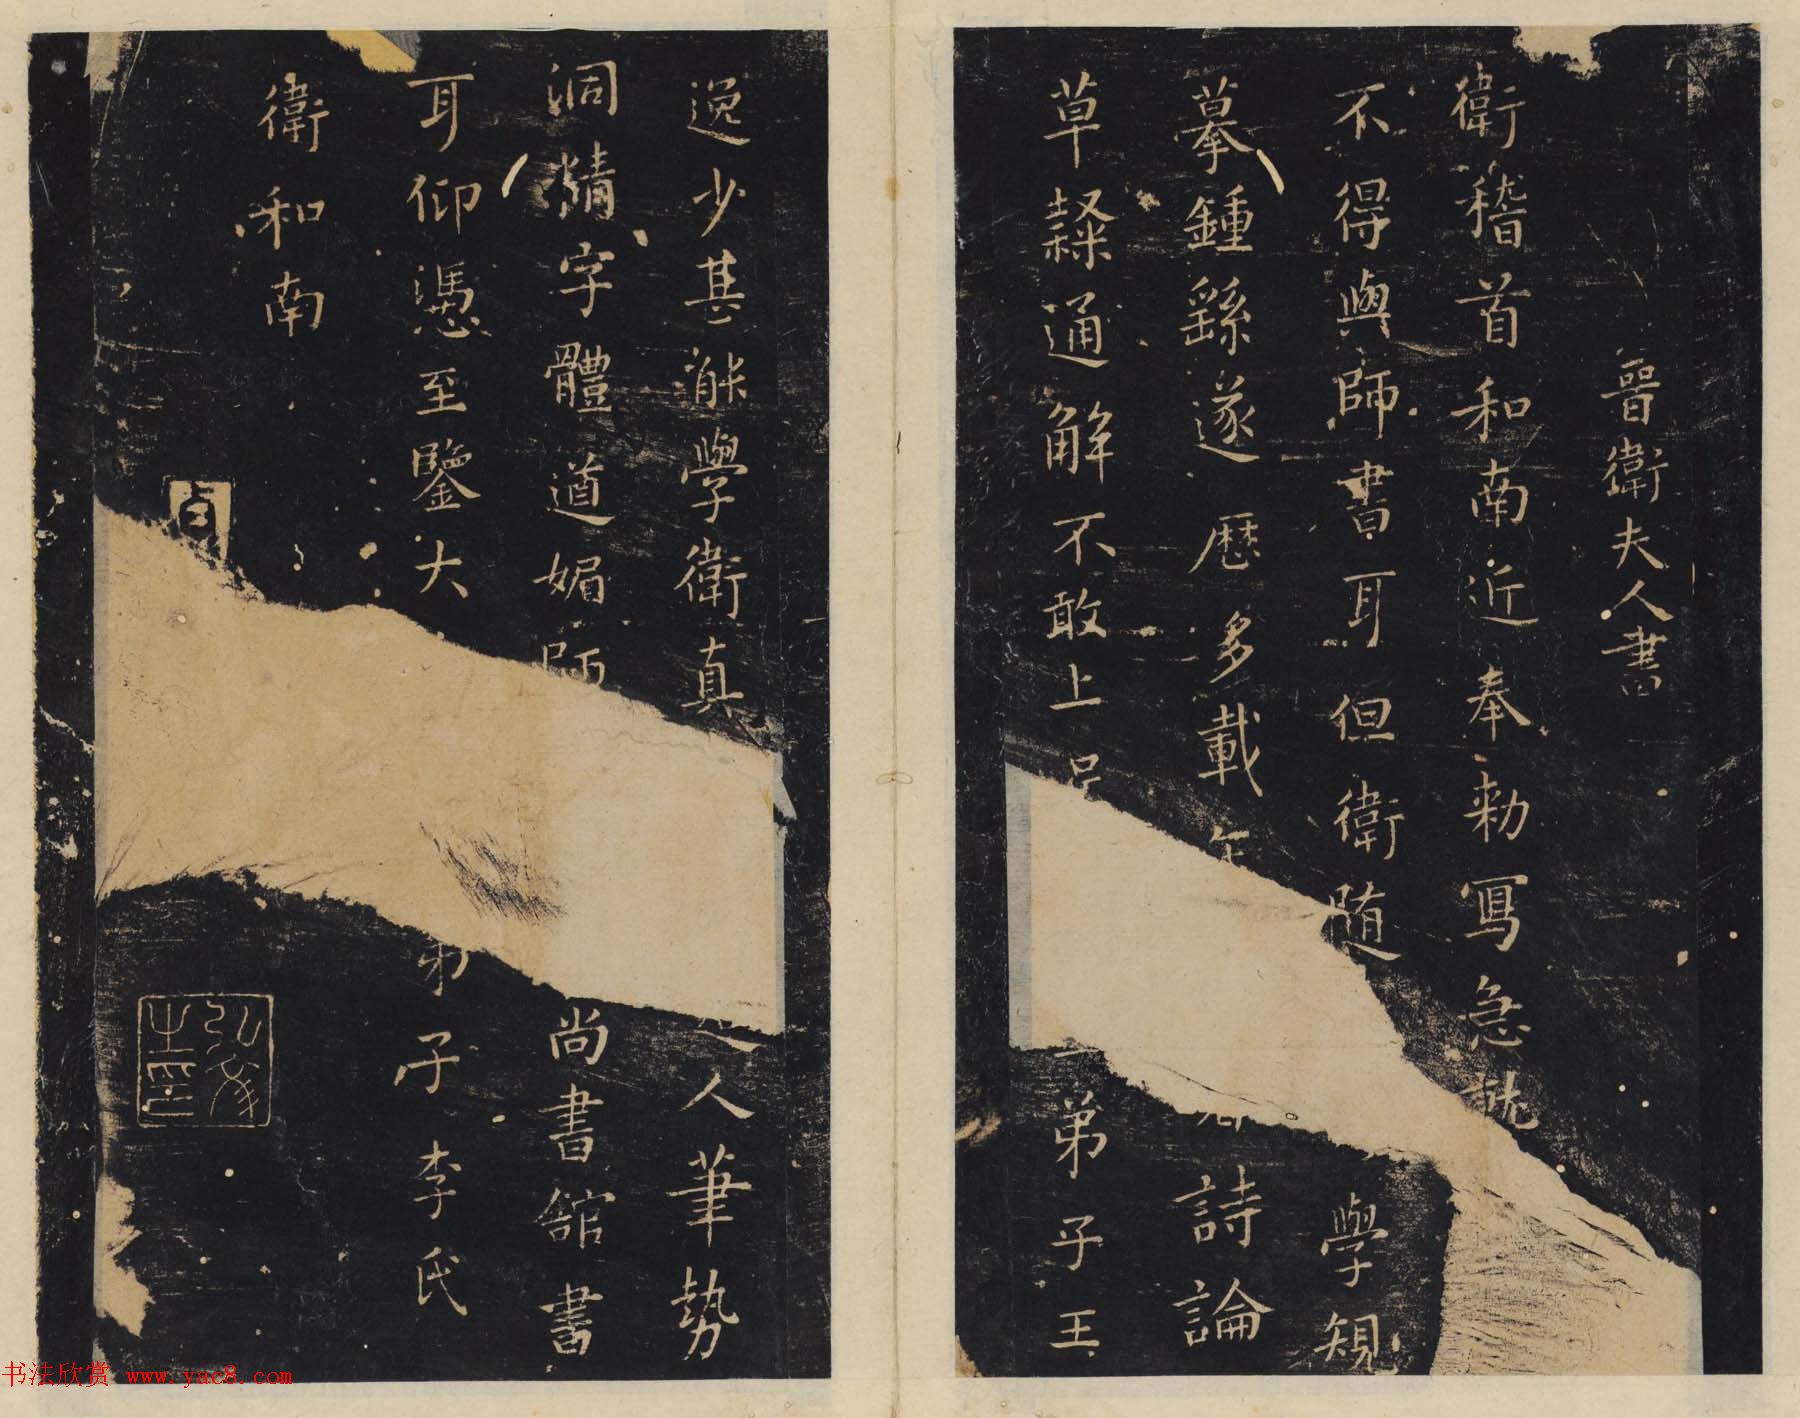 晉衛夫人書
衛稽首和南近奉勅寫急就
不得與師書耳但衛隨學規
摹鍾繇遂歷多載年詩論
草隸通解不敢上弟子王
逸少甚能學衛真人筆勢
洞精字體遒媚師尚書館書
耳仰憑至鑒大弟子李氏
衛和南
貞
弘文之印
书法欣赏 www.yac8.com